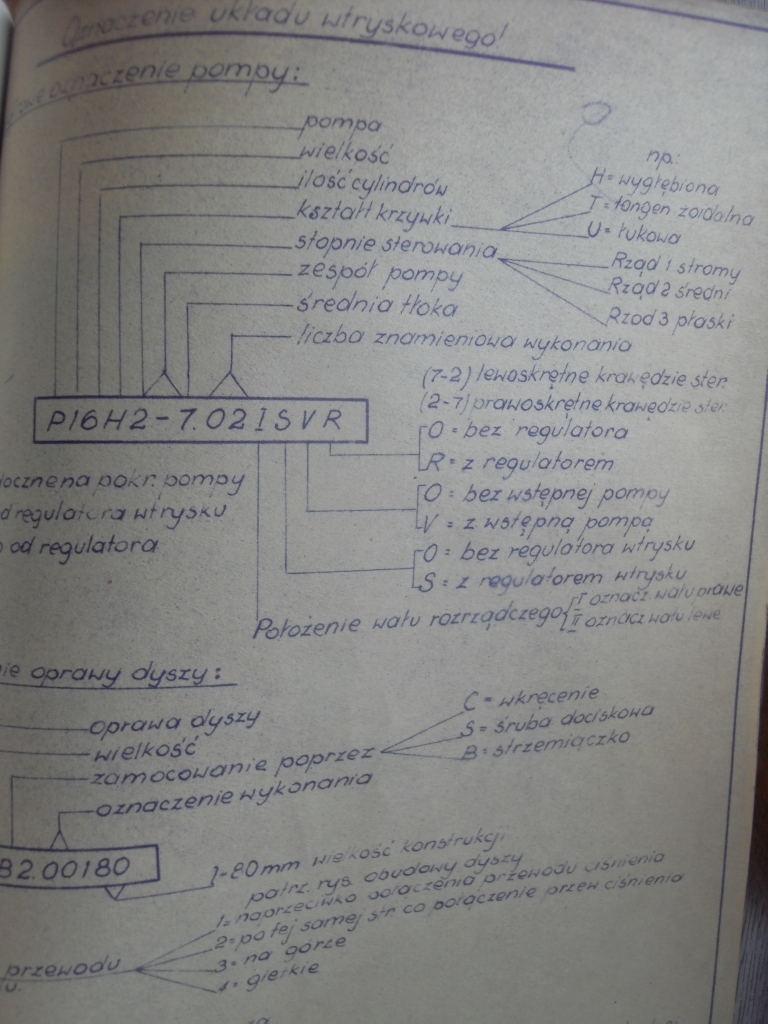 Oznaczenie układu wtryskowego!
oznaczenie pompy:
pompa
wielkość
ilość cylindrów
kształt krzywki
stopnie sterowania
zespół pompy
średnia tłoka
liczba znamieniowa wykonania
np:
H = wygłębiona
T = tangen zoidalna
U = łukowa
Rząd 1 stromy
Rząd 2 średni
Rząd 3 płaski
(7-2) lewoskrętne krawędzie ster.
(2-7) prawoskrętne krawędzie ster.
P16H2-7.02ISVR
O = bez regulatora
R = z regulatorem
O = bez wstępnej pompy
V = z wstępną pompą
O = bez regulatora wtrysku
S = z regulatorem wtrysku
na pokr. pompy
regulatora wtrysku
od regulatora
Położenie wału rozrządczego
I oznacz. wału prawe
II oznacz wału lewe
oprawy dyszy:
oprawa dyszy
wielkość
zamocowanie poprzez
oznaczenie wykonania
C = wkręcenie
S = śruba dociskowa
B = strzemiączko
B2.00180
1-80mm wielkość konstrukcji
patrz. rys. obudowy dyszy
1 = naprzeciwko połączenia przewodu ciśnienia
2 = po tej samej str. co połączenie przew. ciśnienia
3 = na górze
4 = giętkie
przewodu